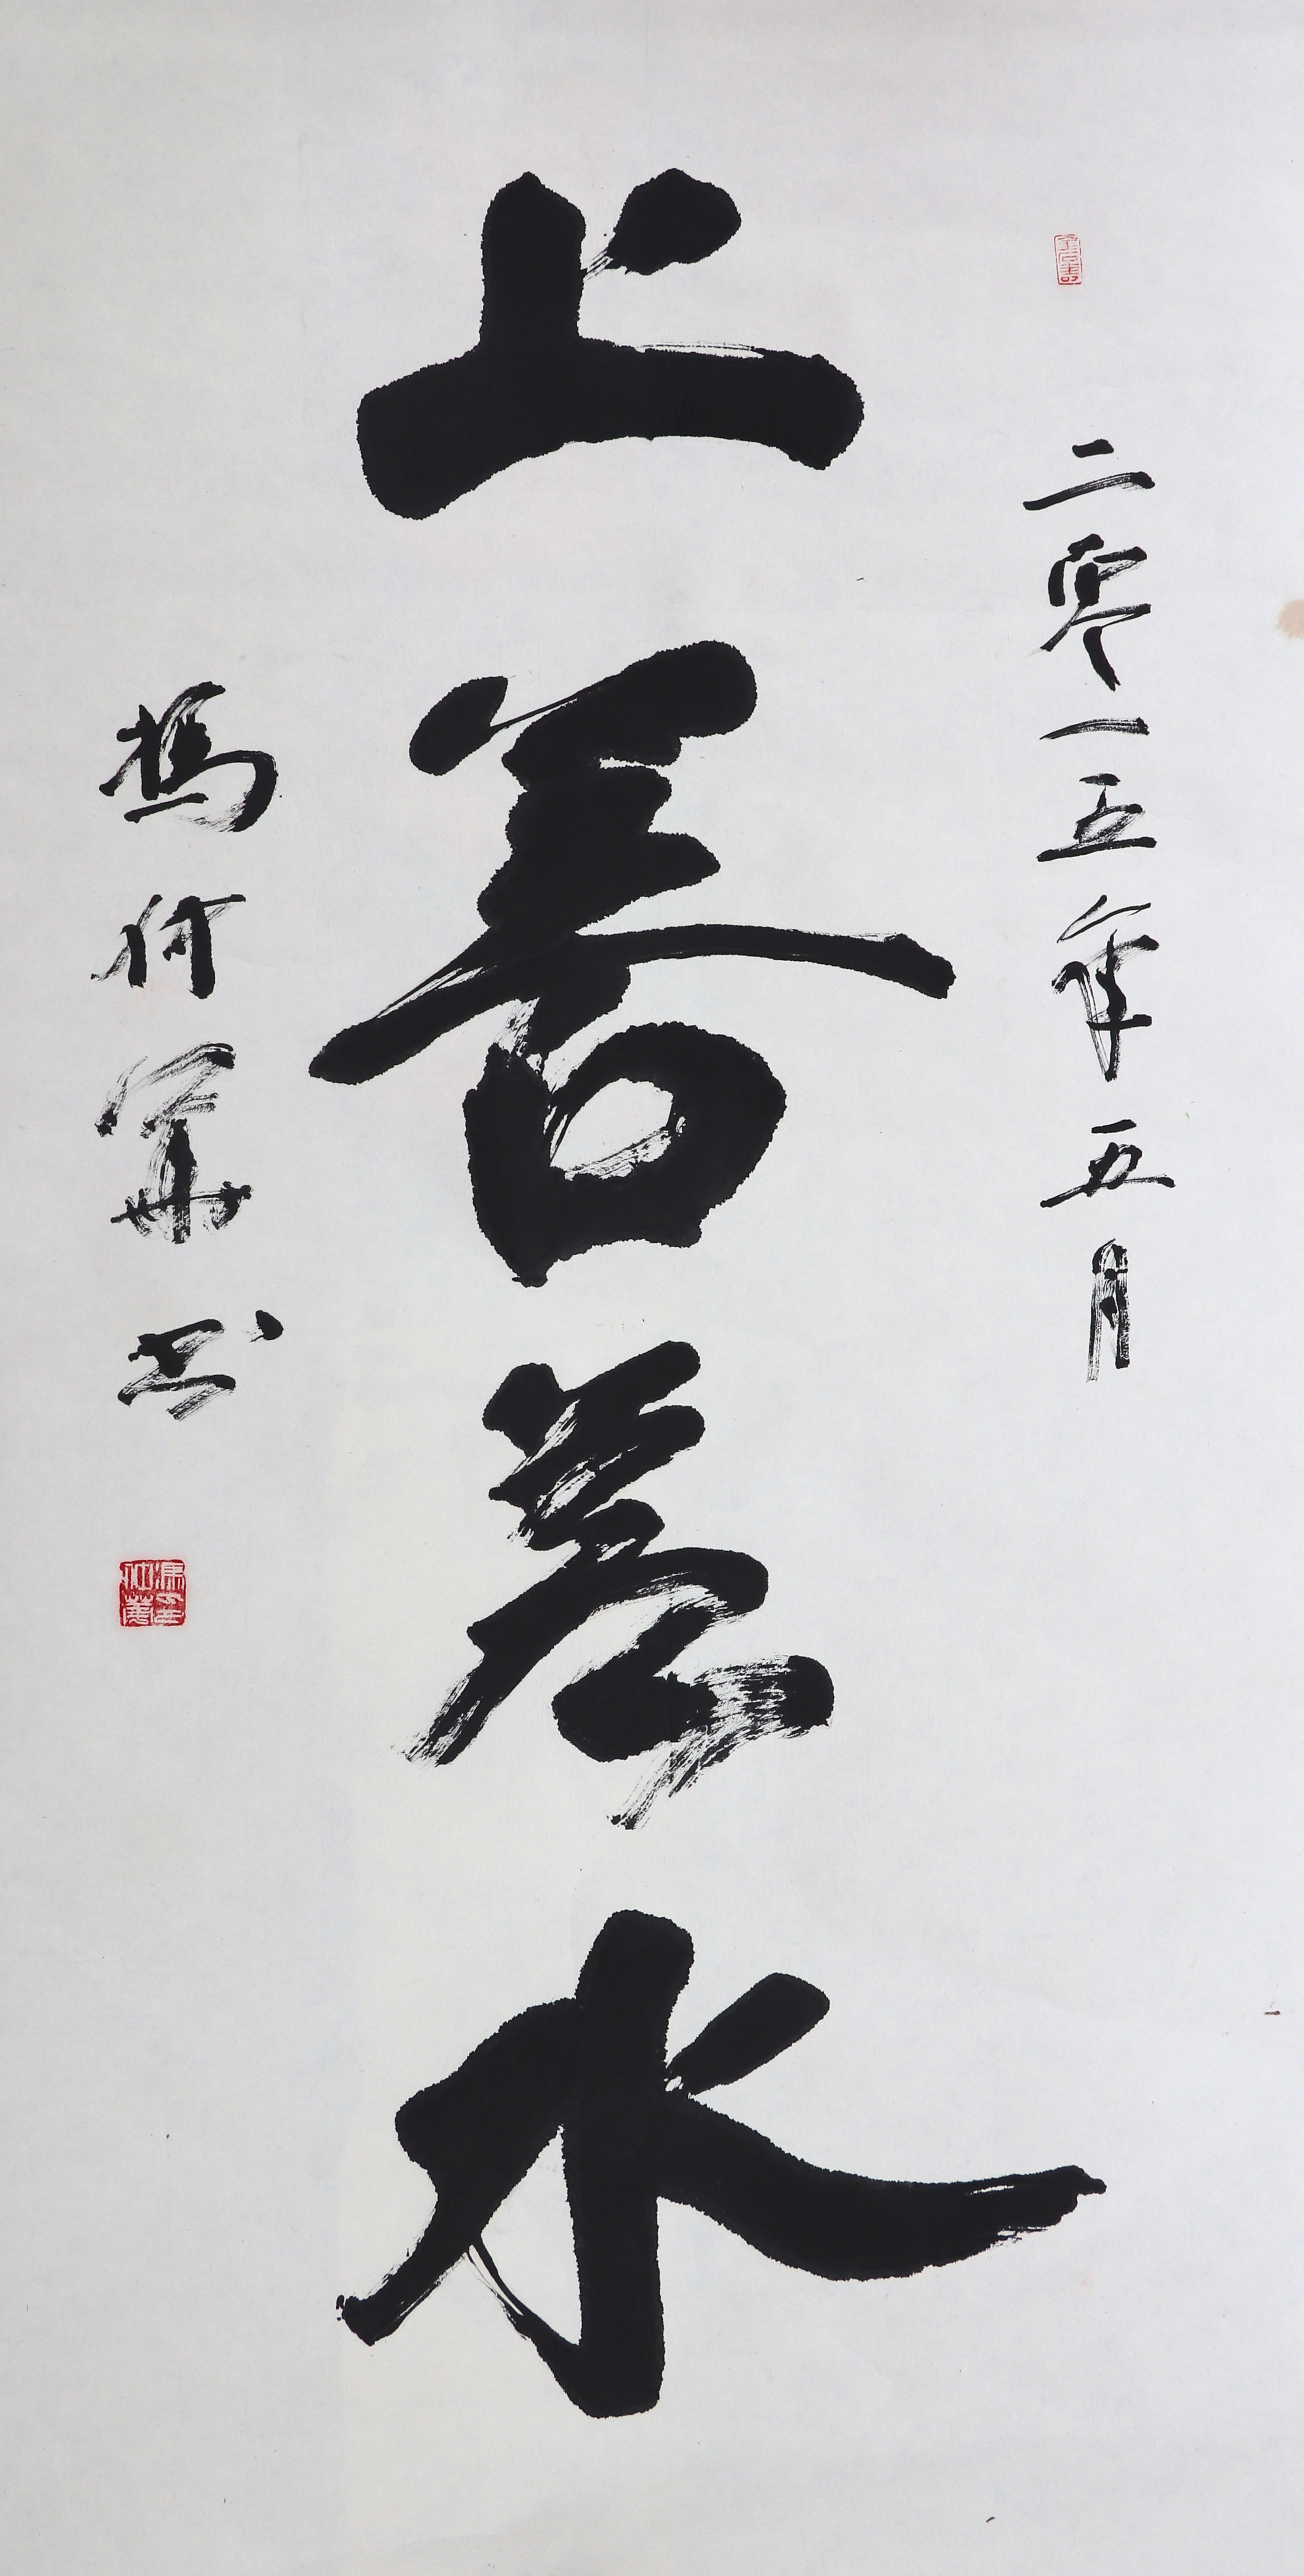 二零一五年五月
上善若水
馮仲華书